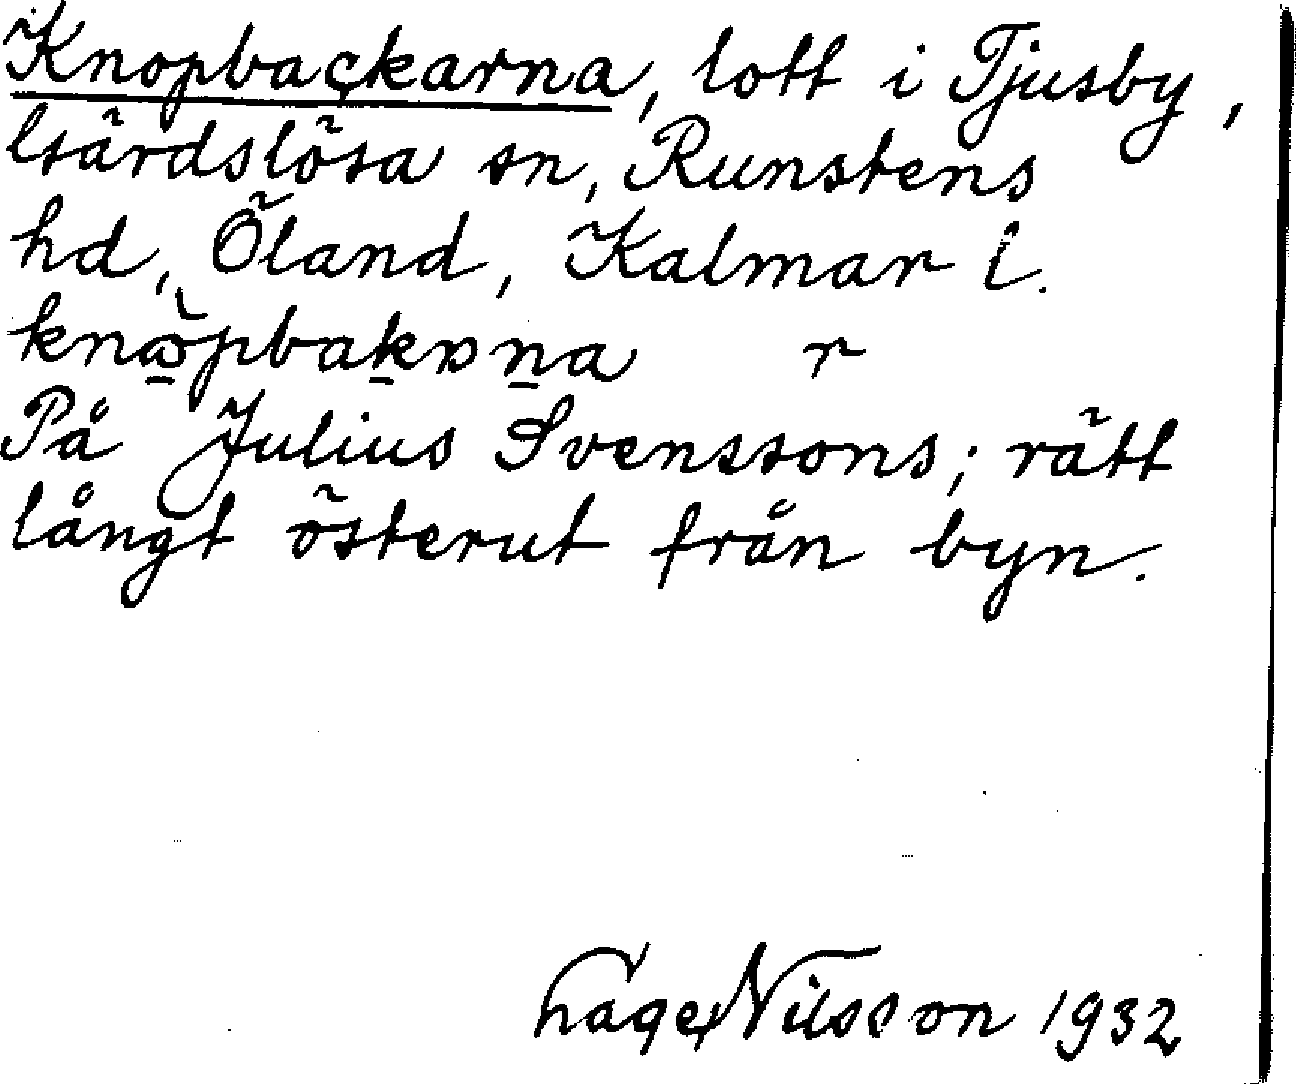 Knopbackarna, lott i Tjusby,
Gärdslösa sn, Runstens
hd, Öland, Kalmar l.
r
På Julius Svenssons; rätt
långt österut från byn.
Nilsson 1932